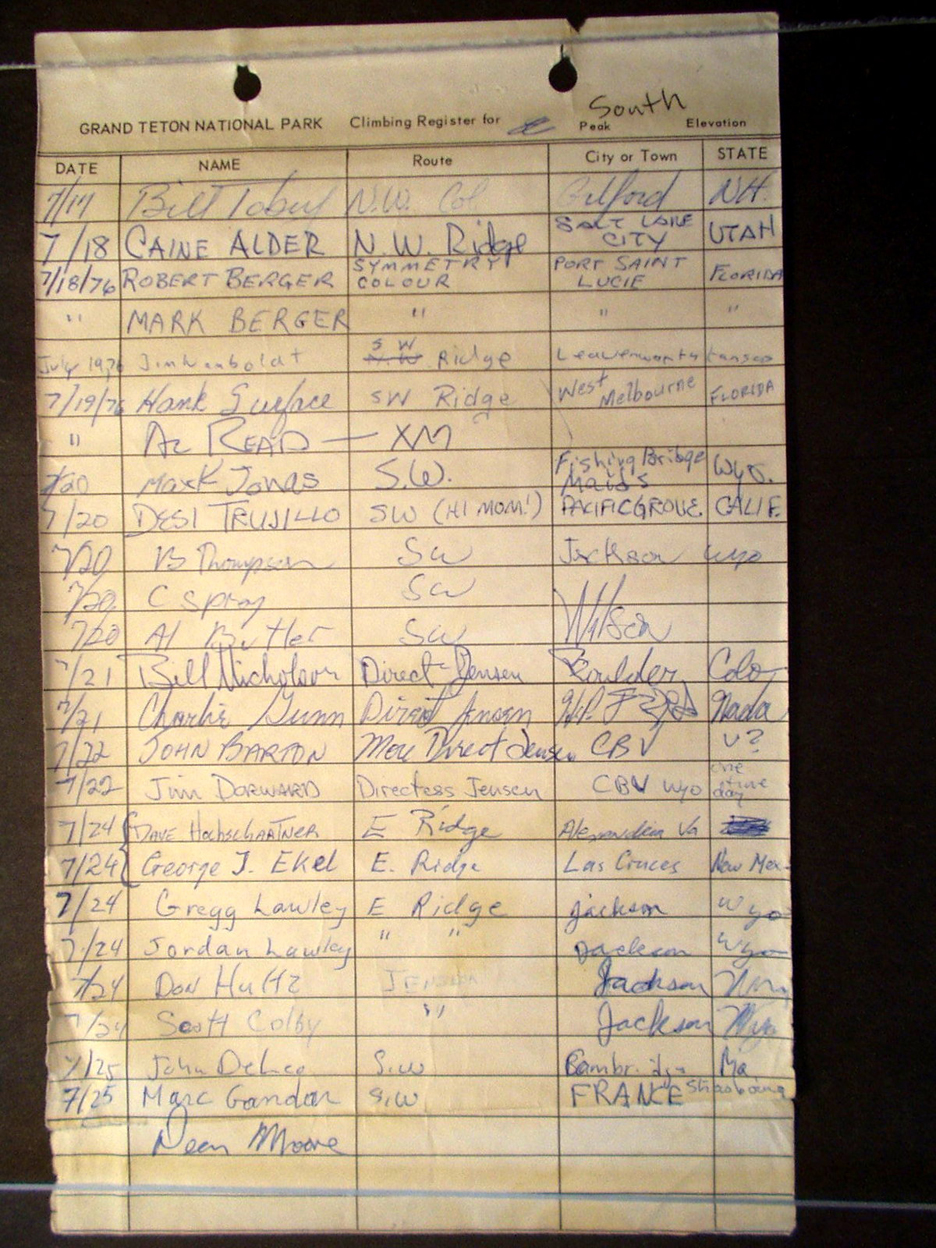 South
GRAND TETON NATIONAL PARK Climbing Register for Peak Elevation
DATE NAME Route City or Town STATE
7/17 Bill N.W. Col Gilford NH.
7/18 CAINE ALDER N.W. Ridge SALT LAKE CITY UTAH
7/18/76 ROBERT BERGER SYMMETRY COLOUR PORT SAINT LUCIE FLORIDA
" MARK BERGER " " "
July 1976 S W Ridge Leavenworth Kansas
7/19/76 Hank Surface SW Ridge West Melbourne FLORIDA
" AL READ — XM
7/20 Mark Jonas S.W. Fishing Bridge Maids Wyo.
7/20 DESI TRUJILLO SW (HI MOM!) PACIFIC GROVE CALIF.
7/20 B Thompson SW Jackson Wyo
7/20 C Spray SW
7/20 Al Butler SW Wilson
7/21 Bill Direct Jensen Boulder Colo
7/21 Charlie Gunn Direct Jensen Nada
7/22 JOHN BARTON More Direct Jensen CBV V?
7/22 Jim DORWARD Directess Jensen CBV Wyo one day
7/24 DAVE E Ridge Alexandria Va
7/24 George J. Ekel E. Ridge Las Cruces New Mex.
7/24 Gregg Lawley E Ridge jackson Wyo
7/24 Jordan Lawley " " Jackson Wyo
7/24 Don Hultz Jensen Jackson Wyo
7/24 Scott Colby " Jackson Wyo
7/25 John S.W Cambridge Ma
7/25 Marc Gandar S.W FRANCE Strasbourg
Dean Moore